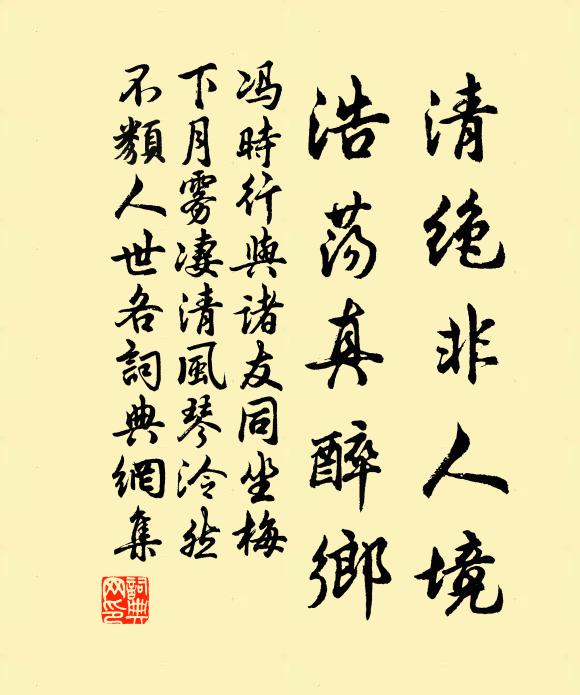 清絶非人境
浩蕩真醉鄉
馮時行與諸友同坐梅
下月雾凄清風琴泠然
不類人世各詞典網集
詞典
网印